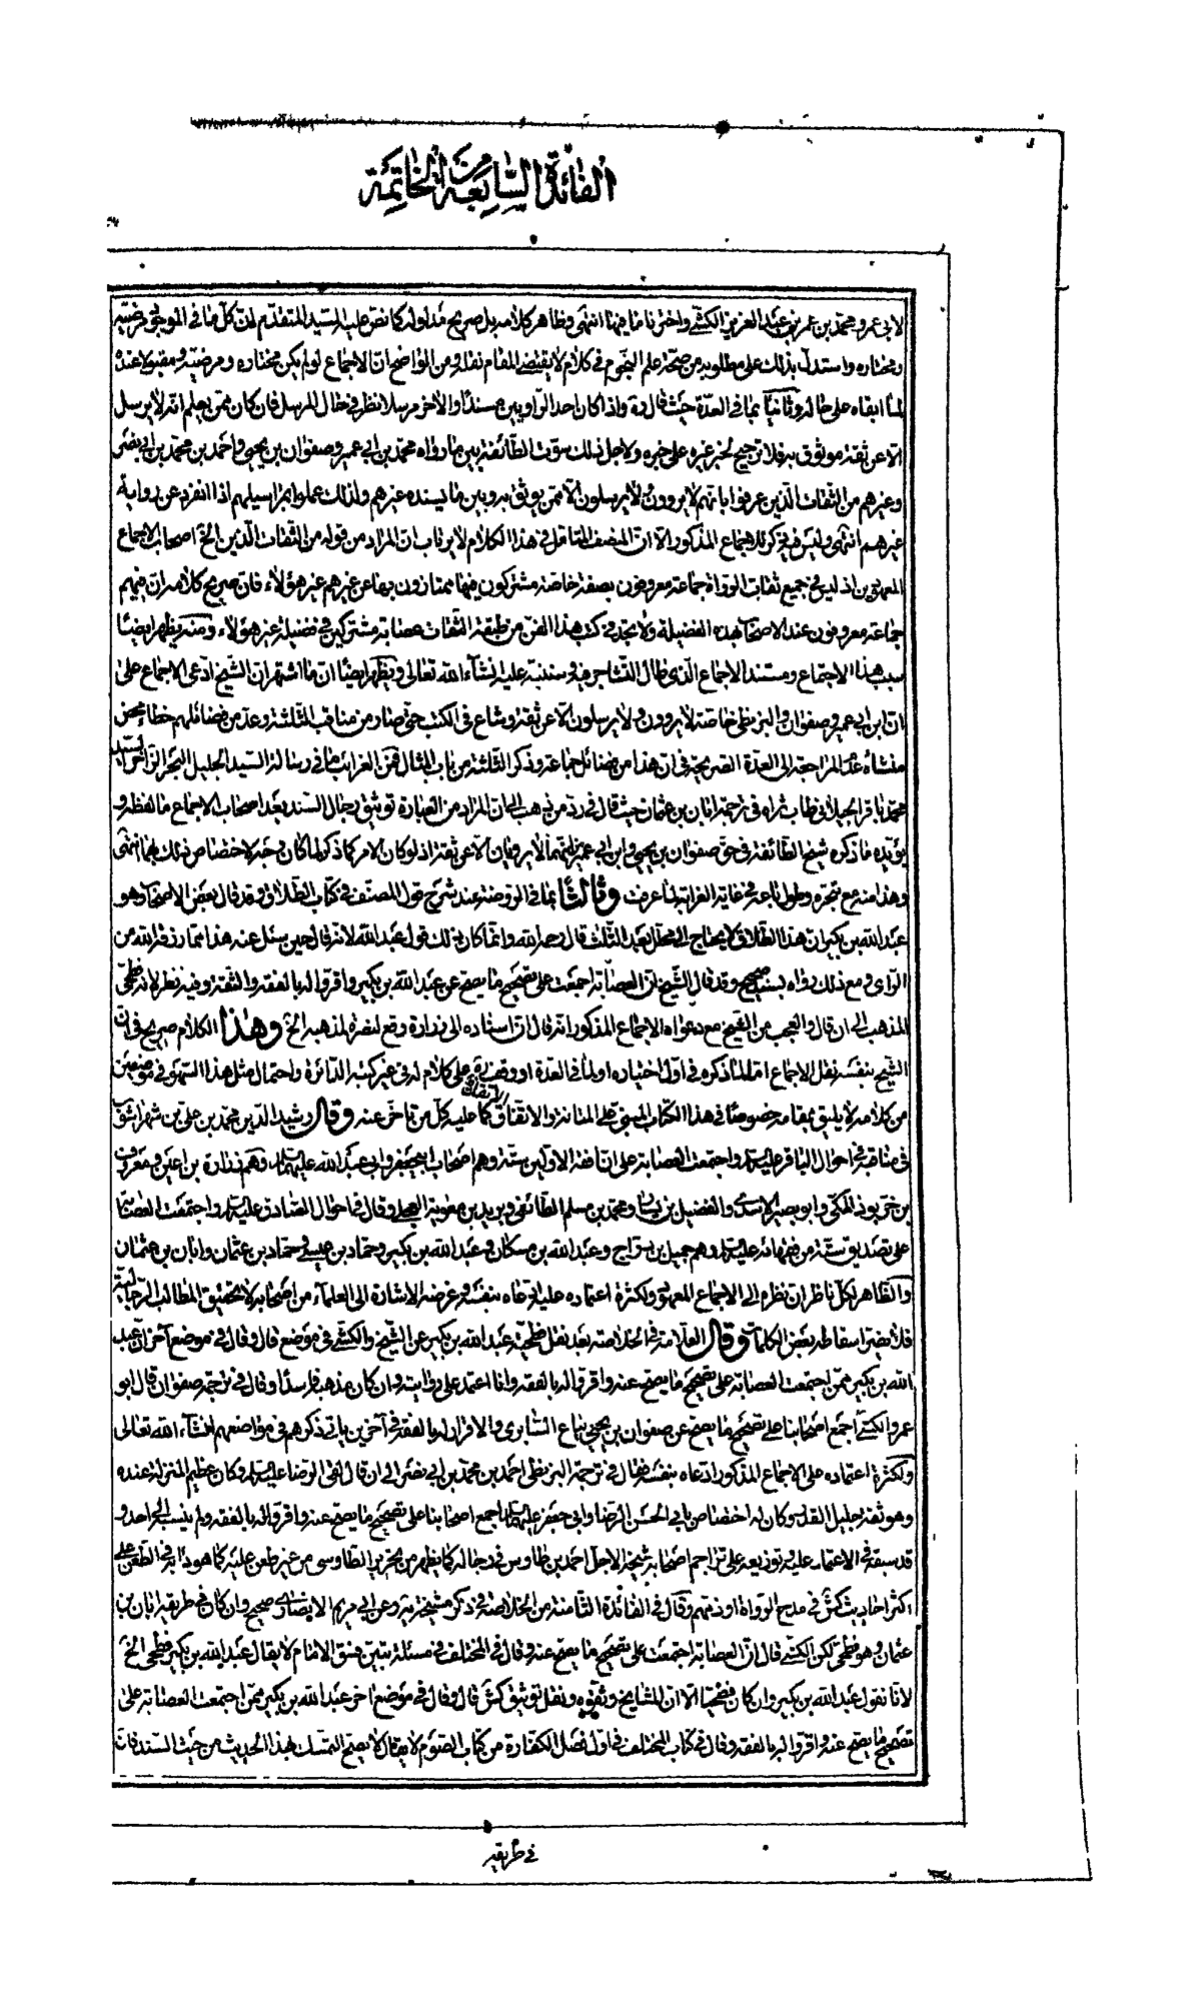 الفائدة السابعة من الخاتمة
لابى عمرو محمد بن عمر بن عبد العزيز الكشى واخترنا ما فيها انتهى وظاهر كلامه بل صريحه مدلوله كما نص عليه السيد المتقدم ان كل ما فى الموجود مرضيه
ومختاره واستدل بذلك على مطلوبه من صحة علم النجوم فى كلام لا يقتضى المقام نقله ومن الواضح ان الاجماع لو لم يكن مختاره ومرضيه ومقبولا عنده
لما ابقاه على حاله وثانيا بما فى العدة حيث قال ره واذا كان احد الراويين مسندا والاخر مرسلا نظر فى حال المرسل فان كان ممن يعلم انه لا يرسل
الا عن ثقة موثوق به فلا ترجيح لخبر غيره على خبره ولاجل ذلك سوت الطائفة بين ما رواه محمد بن ابى عمير وصفوان بن يحيى واحمد بن محمد بن ابى نصر
وغيرهم من الثقات الذين عرفوا بانهم لا يروون ولا يرسلون الا ممن يوثق به وبين ما يسنده غيرهم ولذلك عملوا بمراسيلهم اذا انفرد عن رواية
غيرهم انتهى وليس فيه ذكر للاجماع المذكور الا ان المنصف المتامل فى هذا الكلام لا يرتاب ان المراد من قوله من الثقات الذين الخ اصحاب الاجماع
المعهودين اذ ليس فى جميع ثقات الرواة جماعة معروفون بصفة خاصة مشتركون فيها ممتازون بها عن غيرهم غير هؤلاء فان صريح كلامه ان فيهم
جماعة معروفون عند الاصحاب بهذه الفضيلة ولا تجد فى كتب هذا الفن من طبقة الثقات عصابة مشتركين فى فضيلة غير هؤلاء ومنه يظهر ايضا
سبب هذا الاجتماع ومستند الاجماع الذى طال التشاجر فيه وسننبه عليه انشاء الله تعالى ويظهر ايضا ان ما اشتهر ان الشيخ ادعى الاجماع على
ان ابن ابى عمير وصفوان والبزنطى خاصة لا يروون ولا يرسلون الا عن ثقة وشاع فى الكتب حتى صار من مناقب الثلثة وعد من فضائلهم خطاء محض
منشاه عدم المراجعة الى العدة الصريحة فى ان هذا من فضائل جماعة وذكر الثلثة من باب المثال فمن الغرائب ما فى رسالة السيد الجليل البحر الزاخر السيد
محمد باقر الجيلانى طاب ثراه فى ترجمة ابان بن عثمان حيث قال فى رد من ذهب الى ان المراد من العبارة توثيق رجال السند بعد اصحاب الاجماع ما لفظه و
يؤيده ما ذكره شيخ الطائفة فى حق صفوان بن يحيى وابن ابى عمير انهما لا يرويان الا عن ثقة اذ لو كان الامر كما ذكر لما كان وجه لاختصاص ذلك بهما انتهى
وهذا منه مع تبحره وطول باعه فى غاية الغرابة لما عرفت وثالثا بما فى الروضة عند شرح قول المصنف فى كتاب الطلاق وقد قال بعض الاصحاب وهو
عبد الله بن بكير ان هذا الطلاق لا يحتاج الى محلل بعد الثلث قال رحمه الله وانما كان ذلك قول عبد الله لانه قال حين سئل عنه هذا مما رزق الله من
الراى ومع ذلك رواه بسند صحيح وقد قال الشيخ ان العصابة اجمعت على تصحيح ما يصح عن عبد الله بن بكير واقروا له بالفقه والثقة وفيه نظر لانه فطحى
المذهب الى ان قال والعجب من الشيخ مع دعواه الاجماع المذكور انه قال ان اسناده الى زرارة وقع نصرة لمذهبه الخ وهذا الكلام صريح فى ان
الشيخ بنفسه نقل الاجماع اما لما ذكره فى اول اختياره او لما فى العدة او وقف ره على كلام له فى غير كتبه الدائرة واحتمال مثل هذا السهو فى موضعين
من كلامه لا يليق بمقامه خصوصا فى هذا الكتاب المبنى على المتانة والاتقان كما عليه كل من تاخر عنه وقال رشيد الدين محمد بن على بن شهر اشوب
فى مناقبه فى احوال الباقر عليه السلام واجتمعت العصابة على ان افقه الاولين ستة وهم اصحاب ابى جعفر وابى عبد الله عليهما السلام وهم زرارة بن اعين ومعروف
بن خربوذ المكى وابو بصير الاسدى والفضيل بن يسار ومحمد بن مسلم الطائفى وبريد بن معوية العجلى وقال فى احوال الصادق عليه السلام واجتمعت العصابة
على تصديق ستة من فقهائه عليه السلام وهم جميل بن دراج وعبد الله بن مسكان وعبد الله بن بكير وحماد بن عيسى وحماد بن عثمان وابان بن عثمان
والظاهر لكل ناظر ان نظره الى الاجماع المعهود ولكثرة اعتماده عليه ادعاه بنفسه وغرضه الاشارة الى العلماء من اصحابه لا تحقيق المطالب الرجالية
فلا يضر اسقاطه بعض الكلمات وقال العلامة فى الخلاصة بعد نقل فطحية عبد الله بن بكير عن الشيخ والكشى فى موضع قال وقال فى موضع آخر ان عبد
الله بن بكير ممن اجتمعت العصابة على تصحيح ما يصح عنه واقروا له بالفقه وانا اعتمد على روايته وان كان مذهبه فاسدا وقال فى ترجمة صفوان قال ابو
عمرو الكشى اجمع اصحابنا على تصحيح ما يصح عن صفوان بن يحيى بياع السابرى والاقرار له بالفقه فى آخرين ياتى ذكرهم فى مواضعهم انشاء الله تعالى
ولكثرة اعتماده على الاجماع المذكور ادعاه بنفسه فقال فى ترجمة البزنطى احمد بن محمد بن ابى نصر الى ان قال لقى الرضا عليه السلام وكان عظيم المنزلة عنده
وهو ثقة جليل القدر وكان له اختصاص بابى الحسن الرضا وابى جعفر عليهما السلام اجمع اصحابنا على تصحيح ما يصح عنه واقروا له بالفقه ولم ينسبه الى احد و
قد سبقه فى الاعتماد عليه وتوزيعه على تراجم اصحابه شيخه الاجل احمد بن طاوس فى رجاله كما يظهر من التحرير الطاوسى من غير طعن عليه كما هو دابه فى الطعن على
اكثر احاديث كش فى مدح الرواة او ذمهم وقال فى الفائدة الثامنة من الخلاصة فى ذكر مشيخة يه وعن ابى مريم الانصارى صحيح وان كان فى طريقه ابان بن
عثمان وهو فطحى لكن الكشى قال ان العصابة اجمعت على تصحيح ما يصح عنه وقال فى المختلف فى مسئلة تبين فسق الامام لا يقال عبد الله بن بكير فطحى الخ
لانا نقول عبد الله بن بكير وان كان فطحيا الا ان المشايخ وثقوه ونقل توثيق كش قال وقال فى موضع اخر عبد الله بن بكير ممن اجتمعت العصابة على
تصحيح ما يصح عنه واقروا له بالفقه وقال فى كتاب المختلف فى اول فصل الكفارة من كتاب الصوم لا يقال لا يصح التمسك بهذا الحديث من حيث السند فان
فى طريقه